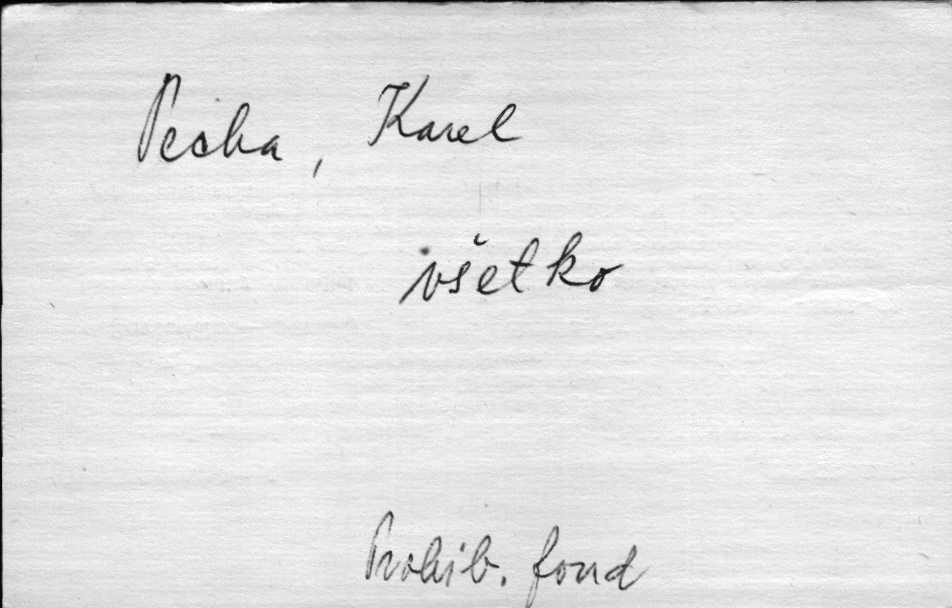 Pecha, Karel
všetko
Prohib. fond